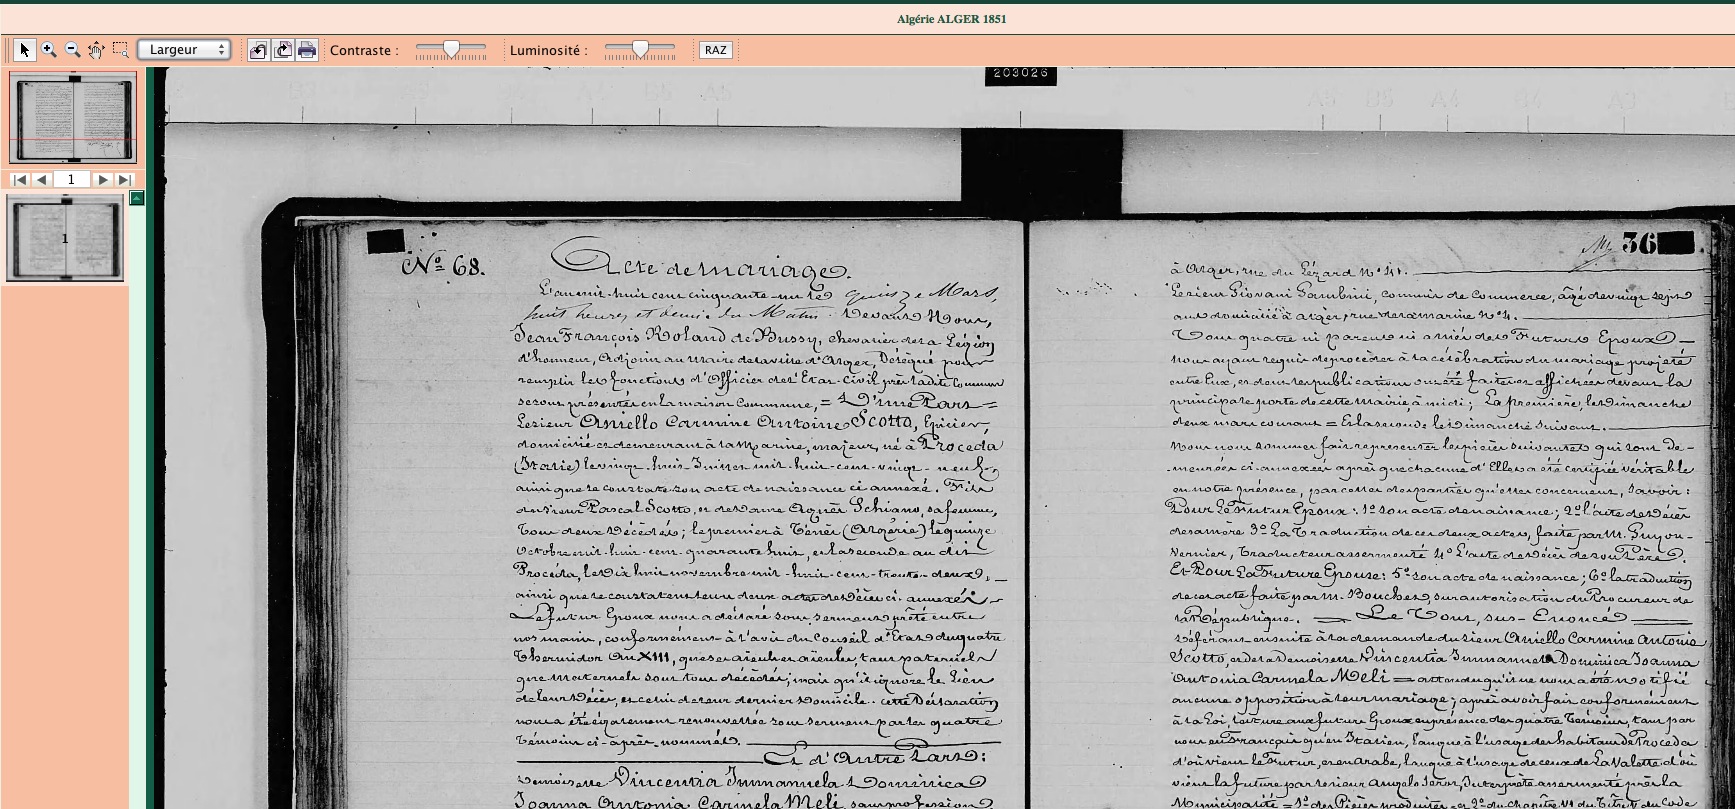 Algérie ALGER 1851
Largeur
Contraste :
Luminosité :
RAZ
1
1
203026
N° 68.
Acte de mariage.
L'an mil huit cent cinquante-un le quinze Mars,
huit heures et demie du Matin. Devant Nous,
Jean François Roland de Bussy, chevalier de la Légion
d'honneur, Adjoint au Maire de la ville d'Alger, Délégué pour
remplir les fonctions d'Officier de l'Etat-Civil près ladite Commune
se sont présentés en la maison Commune, = D'une Part =
Le sieur Aniello Carmine Antoine Scotto, Epicier,
domicilié et demeurant à la Marine, majeur, né à Procéda
(Italie) le vingt-huit Juillet mil-huit-cent-vingt-neuf,
ainsi que le constate son acte de naissance ci annexé. Fils
de sieur Pascal Scotto, et de Dame Agnès Schiano, sa femme,
tous deux Décédés; le premier à Ténès (Algérie) le quinze
Octobre mil-huit-cent-quarante huit, et la seconde au dit
Procéda, le Dix huit novembre mil-huit-cent-trente-deux,
ainsi que le constatent leurs deux actes de Décès ci-annexés
Le futur Epoux nous a déclaré sous serment prêté entre
nos mains, conformément à l'avis du Conseil d'Etat du quatre
Thermidor An XIII, que ses aïeuls et aïeules, tant paternels
que Maternels sont tous décédés, mais qu'il ignore le lieu
de leur Décès, et celui de leur dernier Domicile. Cette Déclaration
nous a été également renouvellée sous serment par les quatre
témoins ci-après nommés.
Et d'Autre Part:
Demoiselle Vincentia Immanuela Dominica
Joanna Antonia Carmela Meli, sans profession
36
à Alger, rue du Lézard N° 41.
Le sieur Giovani Gambini, commis de commerce, âgé de vingt sept
ans domicilié à Alger, rue de la marine N° 4.
Tous quatre ni parens ni amis des Futurs Epoux
nous ayant requis de procéder à la célébration du mariage projeté
entre Eux, et dont les publications ont été faites et affichées devant la
principale porte de cette Mairie, à midi; La première, le dimanche
deux mars courant = Et la seconde le Dimanche suivant.
Nous nous sommes fait représenter les pièces suivantes qui sont de-
-meurées ci-annexées après que chacune d'Elles a été certifiée véritable
en notre présence, par celles des parties qu'elles concernent, Savoir:
Pour Le Futur Epoux: 1° son acte de naissance; 2° l'acte de Décès
de sa mère 3° La Traduction de ces deux actes, faite par M. Guyon-
Vernier, Traducteur assermenté 4° L'acte de Décès de son Père.
Et Pour La Future Epouse: 5° son acte de naissance; 6° la traduction
de cet acte faite par M. Bouchet, sur autorisation du Procureur de
la République. Le Tout, sus-Enoncé
Déférant ensuite à la demande du sieur Aniello Carmine Antonio
Scotto, et de la Demoiselle Vincentia Immanuela Dominica Joanna
Antonia Carmela Meli = attendu qu'il ne nous a été notifié
aucune opposition à leur mariage; après avoir fait conformément
à la Loi, lecture aux futurs Epoux en présence des quatre Témoins, tant par
nous en Français qu'en Italien, langue à l'usage des habitans de Procéda
d'où vient le Futur, et en arabe, langue à l'usage de ceux de La Valette d'où
vient la future par le sieur Angelo, Interprète assermenté près la
Municipalité = 1° des Pièces produites = 2° du chapitre VI du Titre du Code